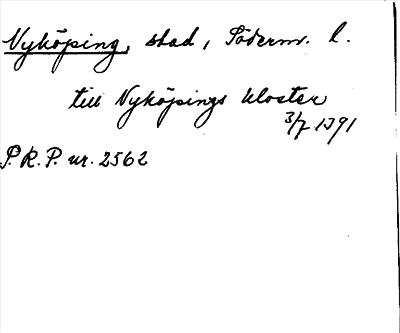 Nyköping, stad, Söderm. l.
till Nyköpings kloster
3/7 1391
S.R.P. nr. 2562